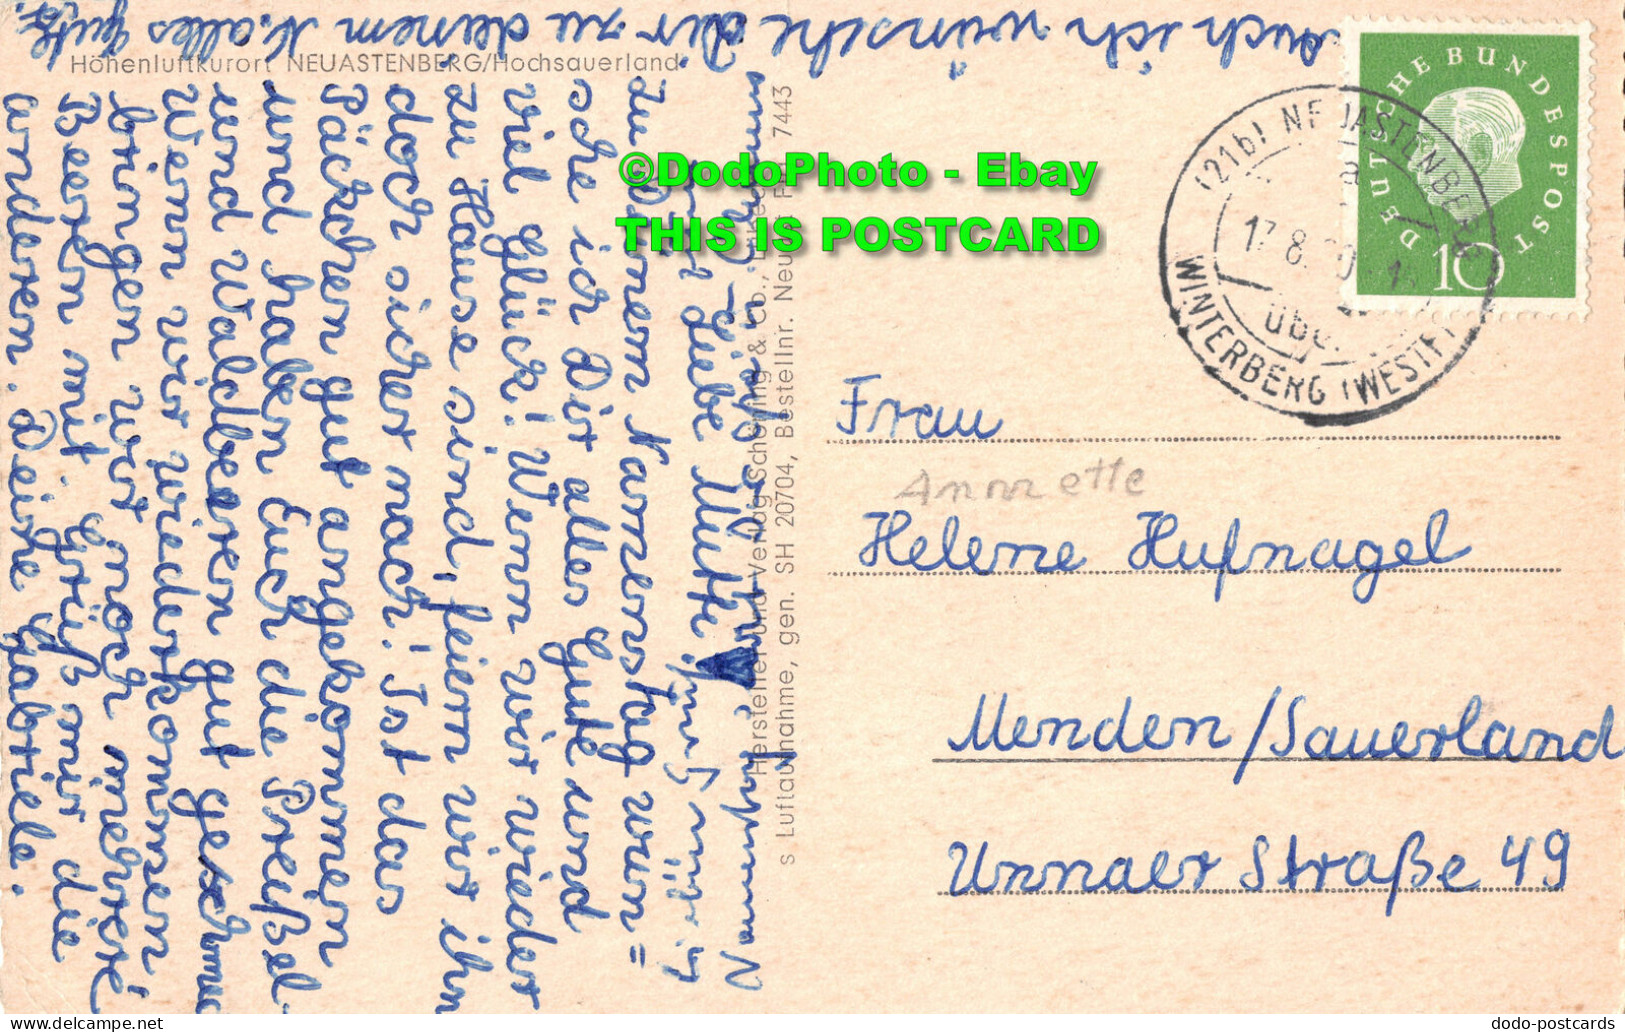 Höhenluftkurort NEUASTENBERG/Hochsauerland
Auch ich wünsche dir zu deinem N. alles gute.
Liebe Mutti!
Zu Deinem Namenstag wün=
sche ich Dir alles Gute und
viel Glück! Wenn wir wieder
zu Hause sind, feiern wir ihn
doch sicher nach! Ist das
Päckchen gut angekommen
und haben Euch die Preißel-
und Waldbeeren gut geschmeckt
Wenn wir wiederkommen
bringen wir noch mehrere
Beeren mit Grüß mir die
anderen. Deine Gabriele.
Hersteller und Verlag Schöning & Co.,
s Luftaufnahme, gen. SH 20704, Bestellnr. Neu 7443
©DodoPhoto - Ebay
THIS IS POSTCARD
DEUTSCHE BUNDESPOST
10
(21b) NEUASTENBERG
17.8.
über
WINTERBERG (WESTF
Frau
Annette
Helene Hufnagel
Menden/Sauerland
Unnaer Straße 49
dodo-postcards
www.delcampe.net